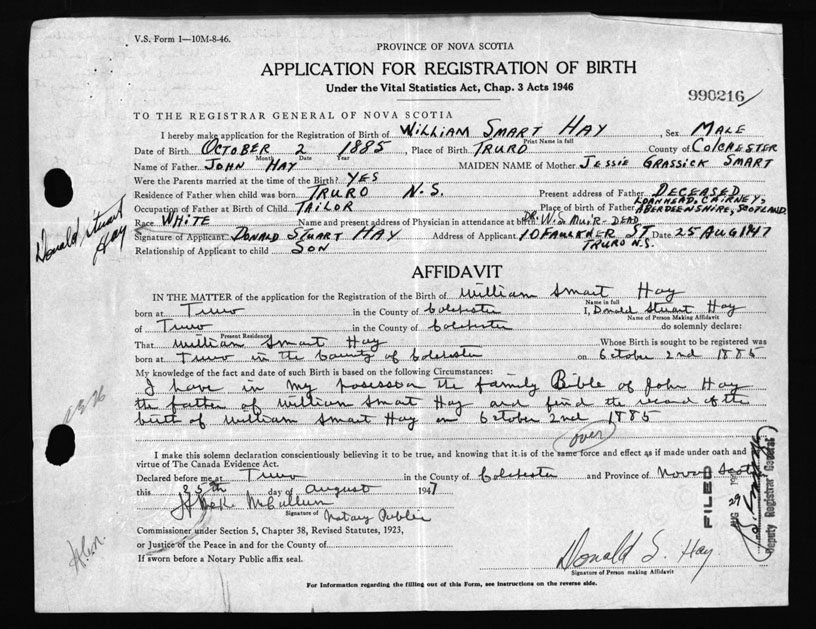 V.S. Form 1—10M-8-46.
PROVINCE OF NOVA SCOTIA
APPLICATION FOR REGISTRATION OF BIRTH
Under the Vital Statistics Act, Chap. 3 Acts 1946
990216
TO THE REGISTRAR GENERAL OF NOVA SCOTIA
I hereby make application for the Registration of Birth of WILLIAM SMART HAY, Sex MALE
Print Name in full
Date of Birth OCTOBER 2 1885, Place of Birth TRURO County of COLCHESTER
Month Date Year
Name of Father JOHN HAY MAIDEN NAME of Mother JESSIE GRASSICK SMART
Were the Parents married at the time of the Birth? YES
Residence of Father when child was born TRURO N.S. Present address of Father DECEASED
Occupation of Father at Birth of Child TAILOR Place of birth of Father LOANHEAD, CAIRNEY, ABERDEENSHIRE, SCOTLAND.
Race WHITE Name and present address of Physician in attendance at birth DR. W.S. MUIR - DEAD
Signature of Applicant DONALD STUART HAY Address of Applicant 10 FAULKNER ST TRURO N.S. Date 25 AUG 1947
Relationship of Applicant to child SON
Donald Stuart Hay
AFFIDAVIT
IN THE MATTER of the application for the Registration of the Birth of William Smart Hay
Name in full
born at Truro in the County of Colchester I, Donald Stuart Hay
Name of Person Making Affidavit
of Truro in the County of Colchester do solemnly declare:
Present Residence
That William Smart Hay Whose Birth is sought to be registered was
born at Truro in the County of Colchester on October 2nd 1885
My knowledge of the fact and date of such Birth is based on the following Circumstances:
I have in my possession the family Bible of John Hay
the father of William Smart Hay and find the record of the
birth of William Smart Hay on October 2nd 1885
over
I make this solemn declaration conscientiously believing it to be true, and knowing that it is of the same force and effect as if made under oath and
virtue of The Canada Evidence Act.
Declared before me at Truro in the County of Colchester and Province of Nova Scotia
this 25th day of August 1947
McCallum
Signature of Notary Public
Commissioner under Section 5, Chapter 38, Revised Statutes, 1923,
or Justice of the Peace in and for the County of
If sworn before a Notary Public affix seal.
Donald S. Hay
Signature of Person making Affidavit
FILED
AUG 29
Deputy Registrar General
For Information regarding the filling out of this Form, see instructions on the reverse side.